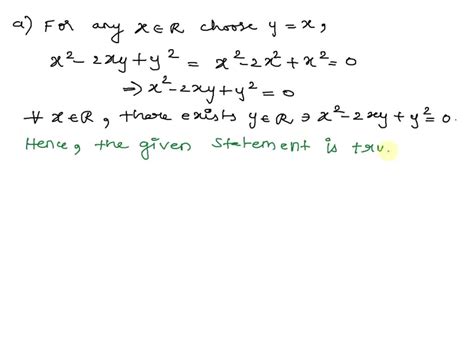 a) For any x∈R choose y=x,
x²-2xy+y² = x²-2x²+x²=0
⇒ x²-2xy+y²=0
∀ x∈R, there exists y∈R ∋ x²-2xy+y²=0.
Hence, the given statement is tru.